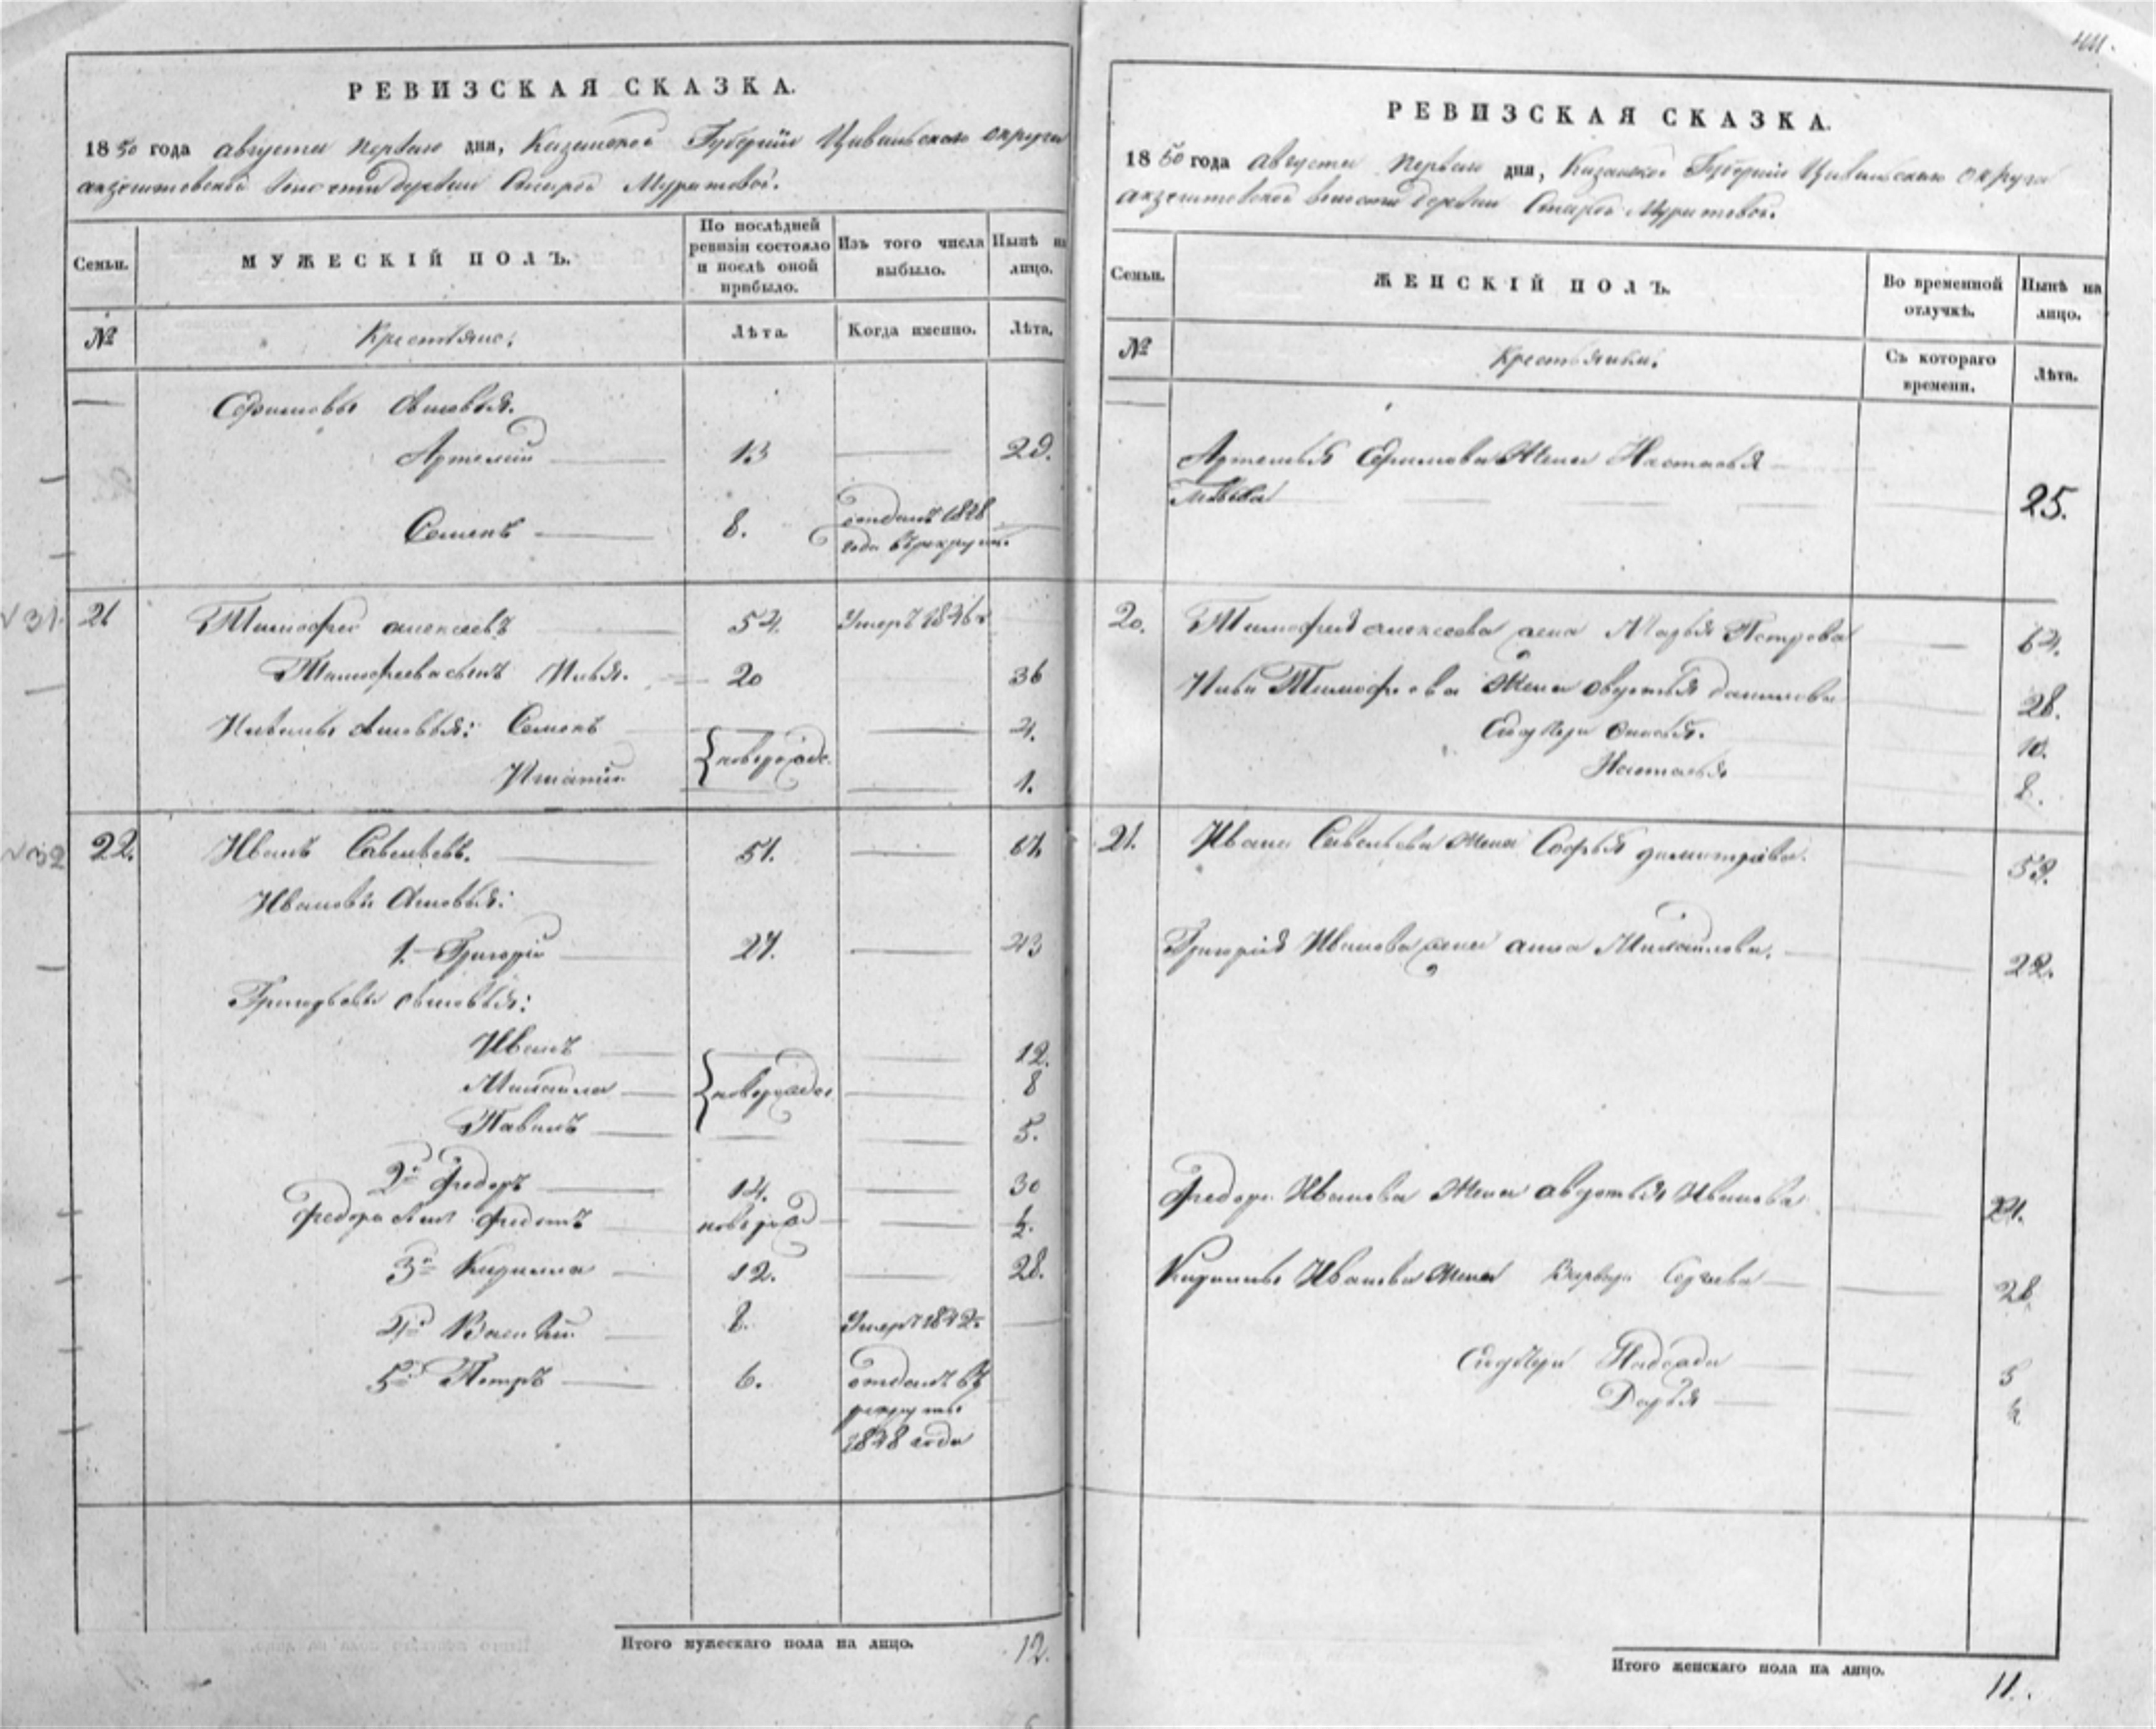 РЕВИЗСКАЯ СКАЗКА.
1850 года августа первого дня, Казанской Губернии Цивильского округа
деревни Старой Муратовой.
Семьи.
МУЖЕСКІЙ ПОЛЪ.
По послѣдней ревизіи состояло и послѣ оной прибыло.
Изъ того числа выбыло.
Нынѣ на лицо.
№
Крестьяне.
Лѣта.
Когда именно.
Лѣта.
Сыновья.
Артемий 13
Семенъ 8. отданъ 1848
года въ рекруты.
√31. 21 Тимофей Алексеевъ 54. Умеръ 1846
Тимофеева сынъ Илья. 20 36
Сыновья: Семенъ новорожд. 4.
Игнатий 1.
√32 22. Иванъ Савельевъ. 51. 67
Ивановы Сыновья:
1. Григорій 27. 43
Григорьевы сыновья:
Иванъ 12.
Михаила новорожд 8
Павелъ 5.
2й Федоръ 14. 30
Федора сынъ Федотъ новорожд ½.
3й Кирилла 12. 28.
4й Василий 8. Умеръ 1842
5й Петръ 6. отданъ въ
рекруты
1848 года
Итого мужескаго пола на лицо. 12.
РЕВИЗСКАЯ СКАЗКА.
1850 года августа первого дня, Казанской Губернии Цивильского округа
деревни Старой Муратовой.
Семьи.
ЖЕНСКІЙ ПОЛЪ.
Во временной отлучкѣ.
Нынѣ на лицо.
№
Крестьянки.
Съ котораго времени.
Лѣта.
Артемья Жена Настасья
25.
20. Тимофея Алексеева жена Марья Петрова 64.
Ильи Тимофеева Жена Авдотья Данилова 28.
Ево дочери 10.
Настасья 8.
21. Ивана Савельева Жена Софья Димитріева. 53.
Григорія Иванова жена Анна Михайлова. 22.
Федора Иванова Жена Авдотья Иванова 24.
Кириллы Иванова Жена Варвара Сергеева 28
Ево дочери 5
Дарья ½
Итого женскаго пола на лицо. 11.